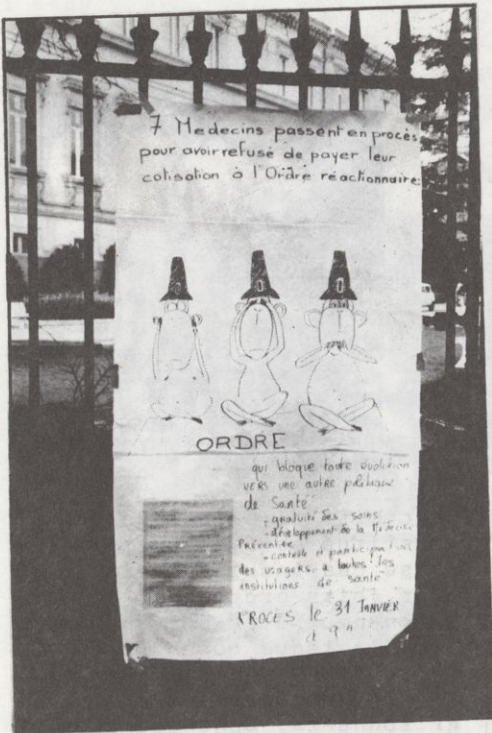 7 Medecins passent en procès
pour avoir refusé de payer leur
cotisation à l'Ordre réactionnaire
ORDRE
qui bloque toute évolution
VERS une autre politique
de Santé
- gratuité des soins
- développement de la Médecine
Préventive
- contrôle et participation
des usagers à toutes les
institutions de santé
PROCES le 31 JANVIER
à 9 h